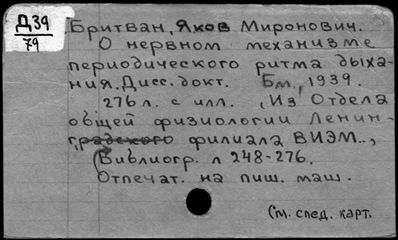 Д39
79
Бритван, Яков Миронович.
О нервном механизме
периодического ритма дыха-
ния. Дисс. докт. Бм, 1939.
276 л. с илл. (Из Отдела
общей физиологии Ленин-
градского филиала ВИЭМ..,
(Библиогр. л 248-276.
Отпечат. на пиш. маш.
(См. след. карт.